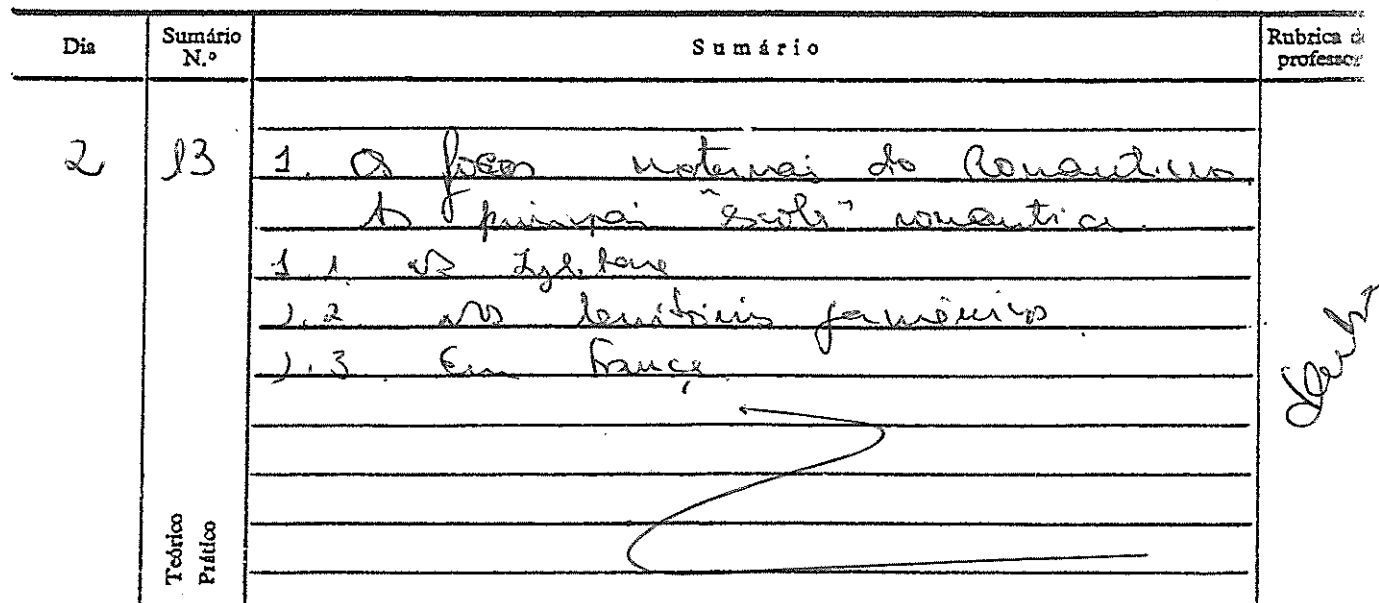 Dia
Sumário N.º
Sumário
Rubrica do professor
2
13
1. Os focos maternais do Romantismo.
As principais "escolas" românticas.
1.1. Na Inglaterra
1.2. Nos territórios germânicos
1.3. Em França.
Teórico
Prático